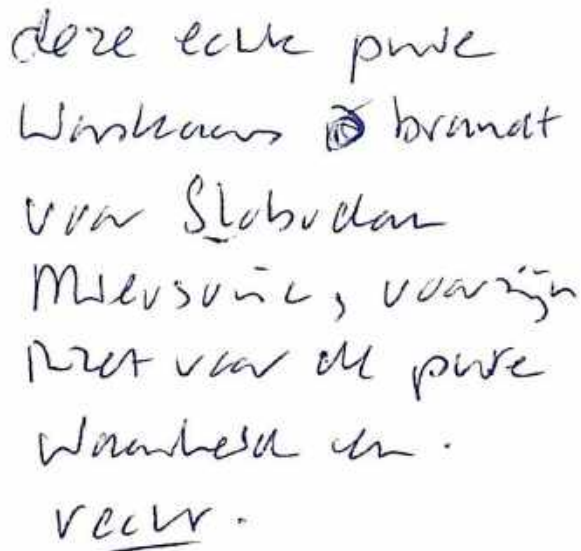 deze echte pure
Waskaars brandt
voor Slobodan
Milosovic, voor zijn
inzet voor de pure
waarheid en.
recht.